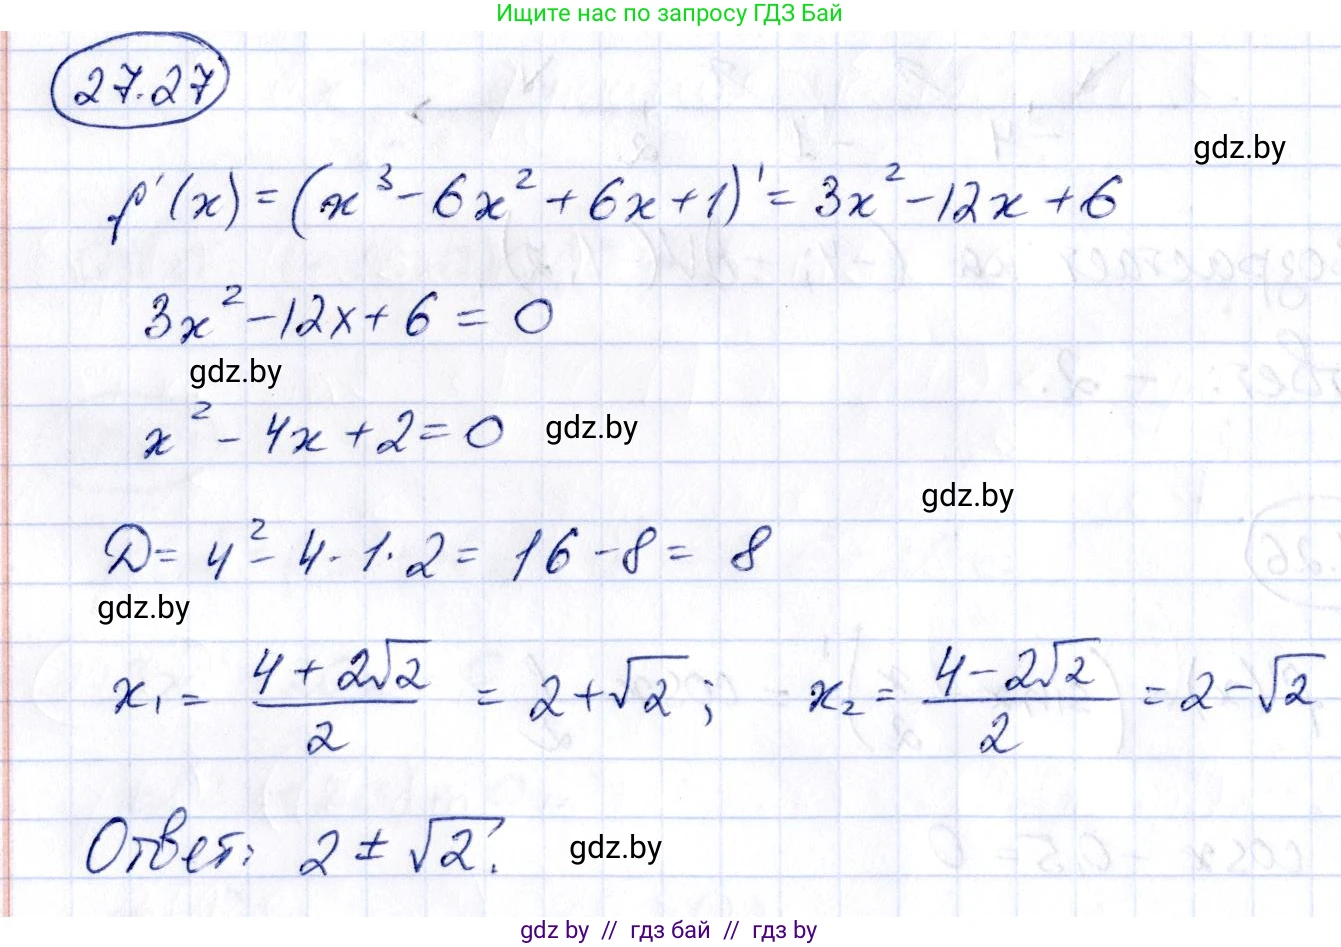 Ищите нас по запросу ГДЗ Бай
27.27
gdz.by
f'(x) = (x³ - 6x² + 6x + 1)' = 3x² - 12x + 6
3x² - 12x + 6 = 0
gdz.by
x² - 4x + 2 = 0
gdz.by
gdz.by
D = 4² - 4 · 1 · 2 = 16 - 8 = 8
gdz.by
x₁ = (4 + 2√2)/2 = 2 + √2; x₂ = (4 - 2√2)/2 = 2 - √2
Ответ: 2 ± √2.
gdz.by
gdz by // гдз бай // гдз by